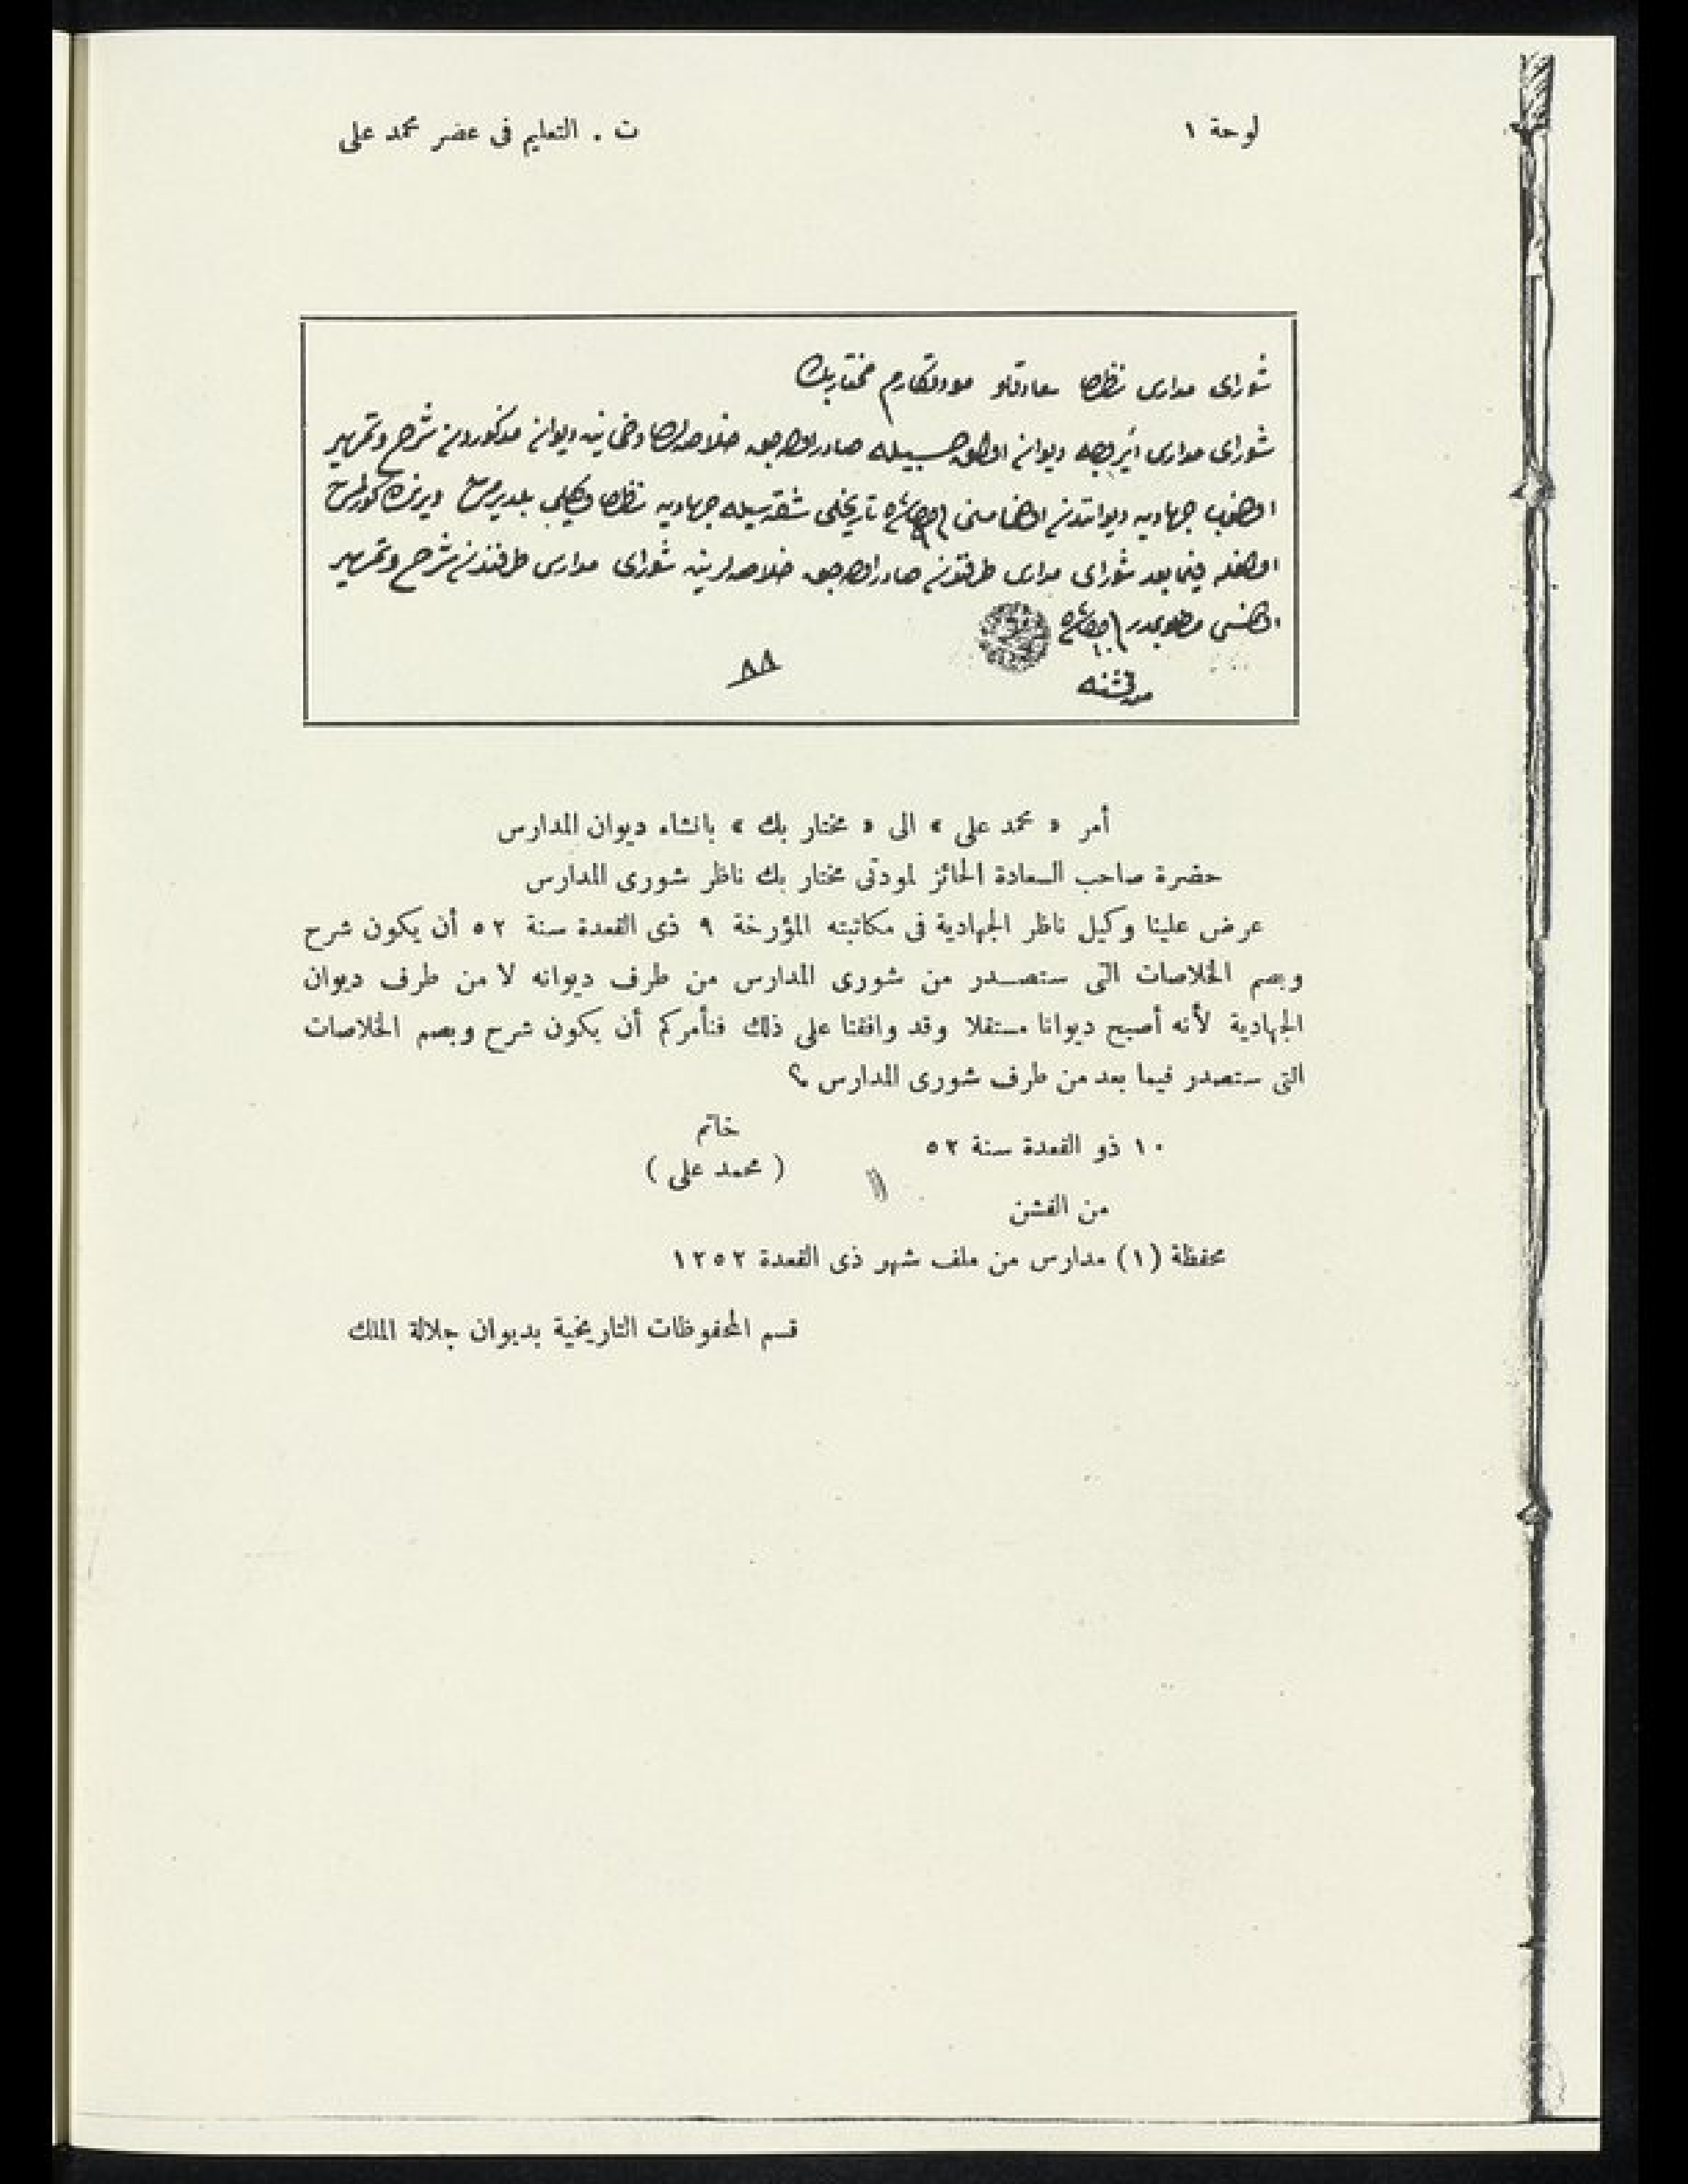 لوحة ١
ت . التعليم فى عصر محمد على
شوراى مدارس ناظرى سعادتلو مودتكارم مختار بك
شوراى مدارس ديوان صادر خلاصه ديوان مذكوردن شرح وتمهير
جهاديه ديوانندن تاريخلى شقه سيله جهاديه ناظرى وكيلى
فيما بعد شوراى مدارس طرفندن صادر اوله جق خلاصه لرينه شوراى مدارس طرفندن شرح وتمهير
مطلوبمدر
٨٨
أمر « محمد على » الى « مختار بك » بانشاء ديوان المدارس
حضرة صاحب السعادة الحائز لمودتى مختار بك ناظر شورى المدارس
عرض علينا وكيل ناظر الجهادية فى مكاتبته المؤرخة ٩ ذى القعدة سنة ٥٢ أن يكون شرح
وبصم الخلاصات التى ستصدر من شورى المدارس من طرف ديوانه لا من طرف ديوان
الجهادية لأنه أصبح ديوانا مستقلا وقد وافقنا على ذلك فنأمركم أن يكون شرح وبصم الخلاصات
التى ستصدر فيما بعد من طرف شورى المدارس
خاتم
١٠ ذو القعدة سنة ٥٢
( محمد على )
من الفشن
محفظة (١) مدارس من ملف شهر ذى القعدة ١٢٥٢
قسم المحفوظات التاريخية بديوان جلالة الملك